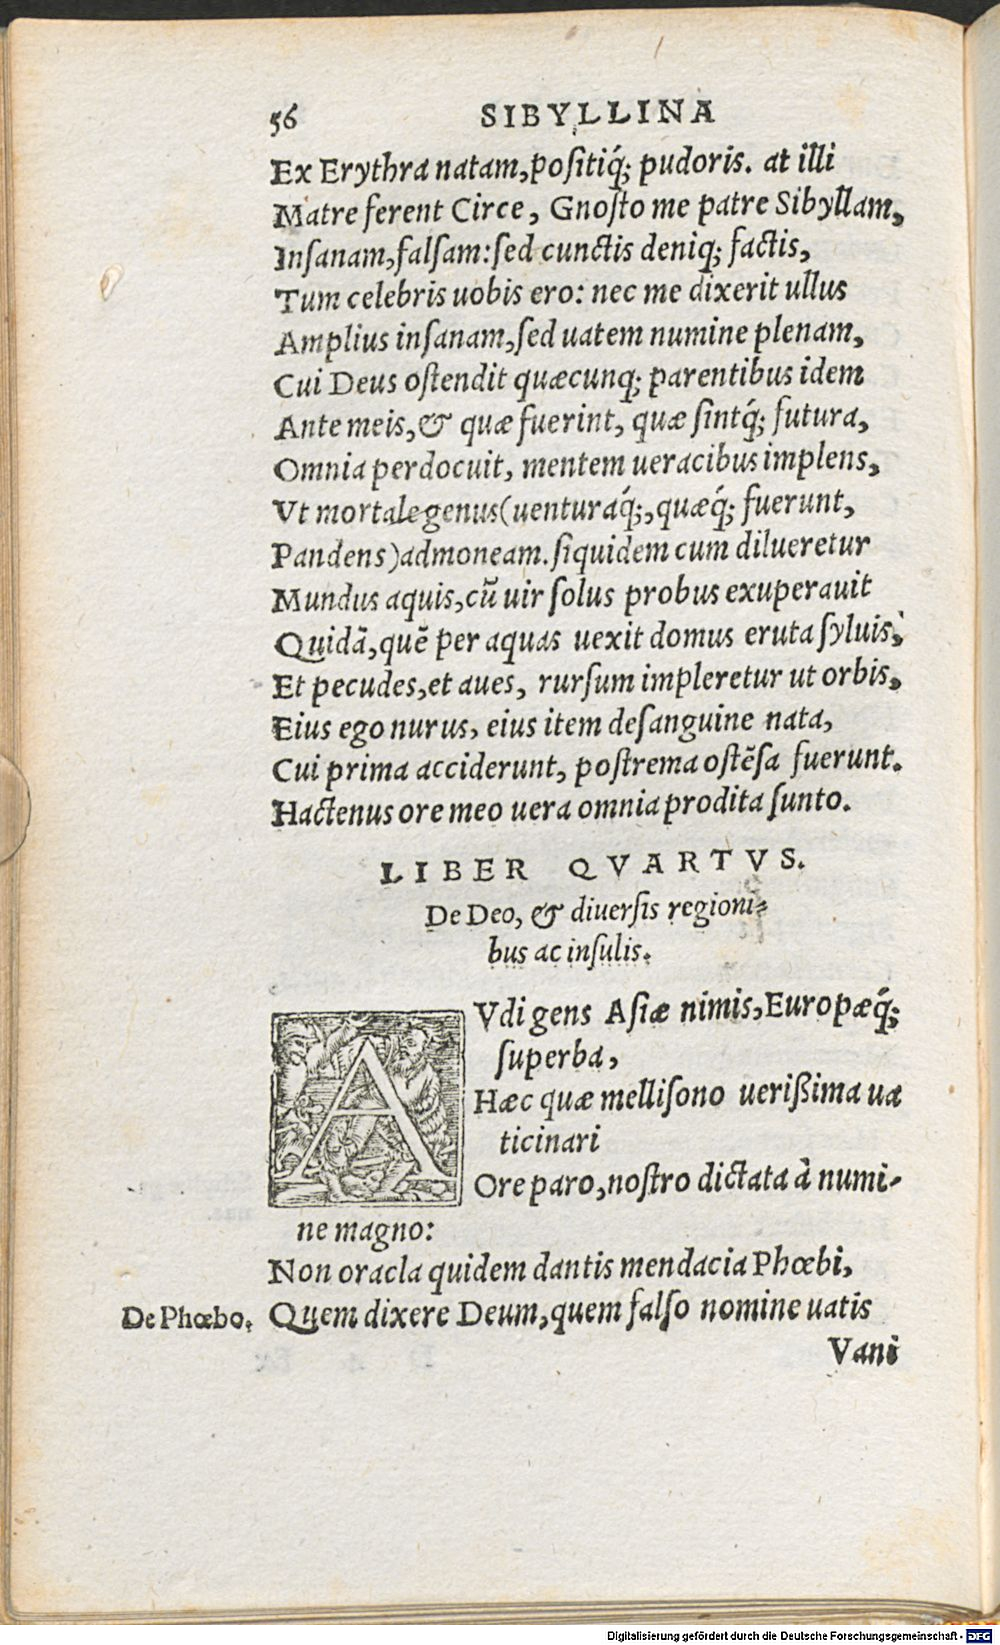 56 SIBYLLINA
Ex Erythra natam, positiq́; pudoris. at illi
Matre ferent Circe, Gnosto me patre Sibyllam,
Insanam, falsam: sed cunctis deniq; factis,
Tum celebris uobis ero: nec me dixerit ullus
Amplius insanam, sed uatem numine plenam,
Cui Deus ostendit quæcunq; parentibus idem
Ante meis, & quæ fuerint, quæ sintq́; futura,
Omnia perdocuit, mentem ueracibus implens,
Vt mortale genus (uenturaq́;, quæq́; fuerunt,
Pandens) admoneam. siquidem cum dilueretur
Mundus aquis, cū uir solus probus exuperauit
Quidā, quē per aquas uexit domus eruta syluis,
Et pecudes, et aues, rursum impleretur ut orbis,
Eius ego nurus, eius item de sanguine nata,
Cui prima acciderunt, postrema ostēsa fuerunt.
Hactenus ore meo uera omnia prodita sunto.
LIBER QVARTVS.
De Deo, & diuersis regioni=
bus ac insulis.
AVdi gens Asiæ nimis, Europæq́;
superba,
Hæc quæ mellisono uerißima ua
ticinari
Ore paro, nostro dictata à numi-
ne magno:
Non oracla quidem dantis mendacia Phœbi,
De Phœbo. Quem dixere Deum, quem falso nomine uatis
Vani
Digitalisierung gefördert durch die Deutsche Forschungsgemeinschaft - DFG